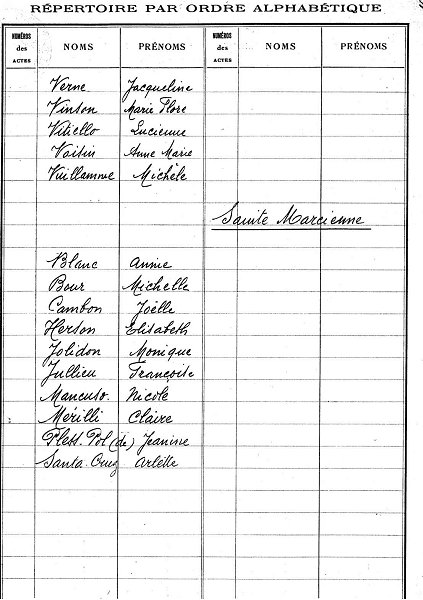 RÉPERTOIRE PAR ORDRE ALPHABÉTIQUE
NUMÉROS des ACTES NOMS PRÉNOMS NUMÉROS des ACTES NOMS PRÉNOMS
Verne Jacqueline
Vinson Marie Flore
Vitiello Lucienne
Voisin Anne Marie
Vuillamme Michèle
Sainte Marcienne
Blanc Annie
Bour Michelle
Cambon Joëlle
Herson Elisabeth
Jolidon Monique
Jullien Françoise
Mancuso. Nicole
Mérilli Claire
Plett. Pol (de) Jeanine
Santa. Cruz Arlette